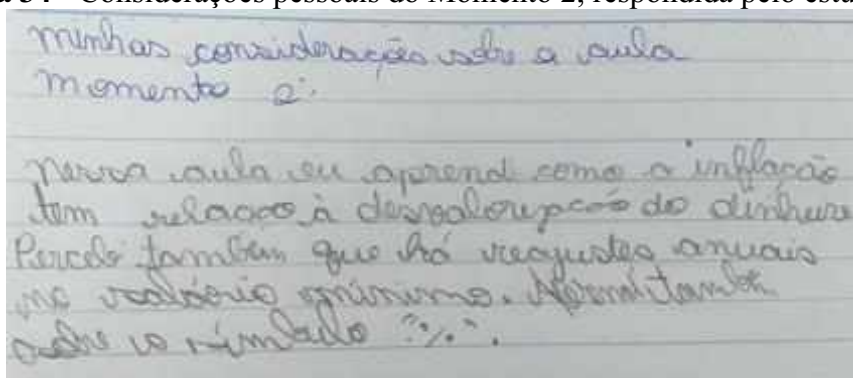 Considerações pessoais do Momento 2, respondida pelo
Minhas considerações sobre a aula
Momento 2.
Nessa aula eu aprend como a inflação
tem relação à desvalorização do dinheiro
Percebi também que há reajustes anuais
no salário mínimo. também
sobre o símbolo "%".